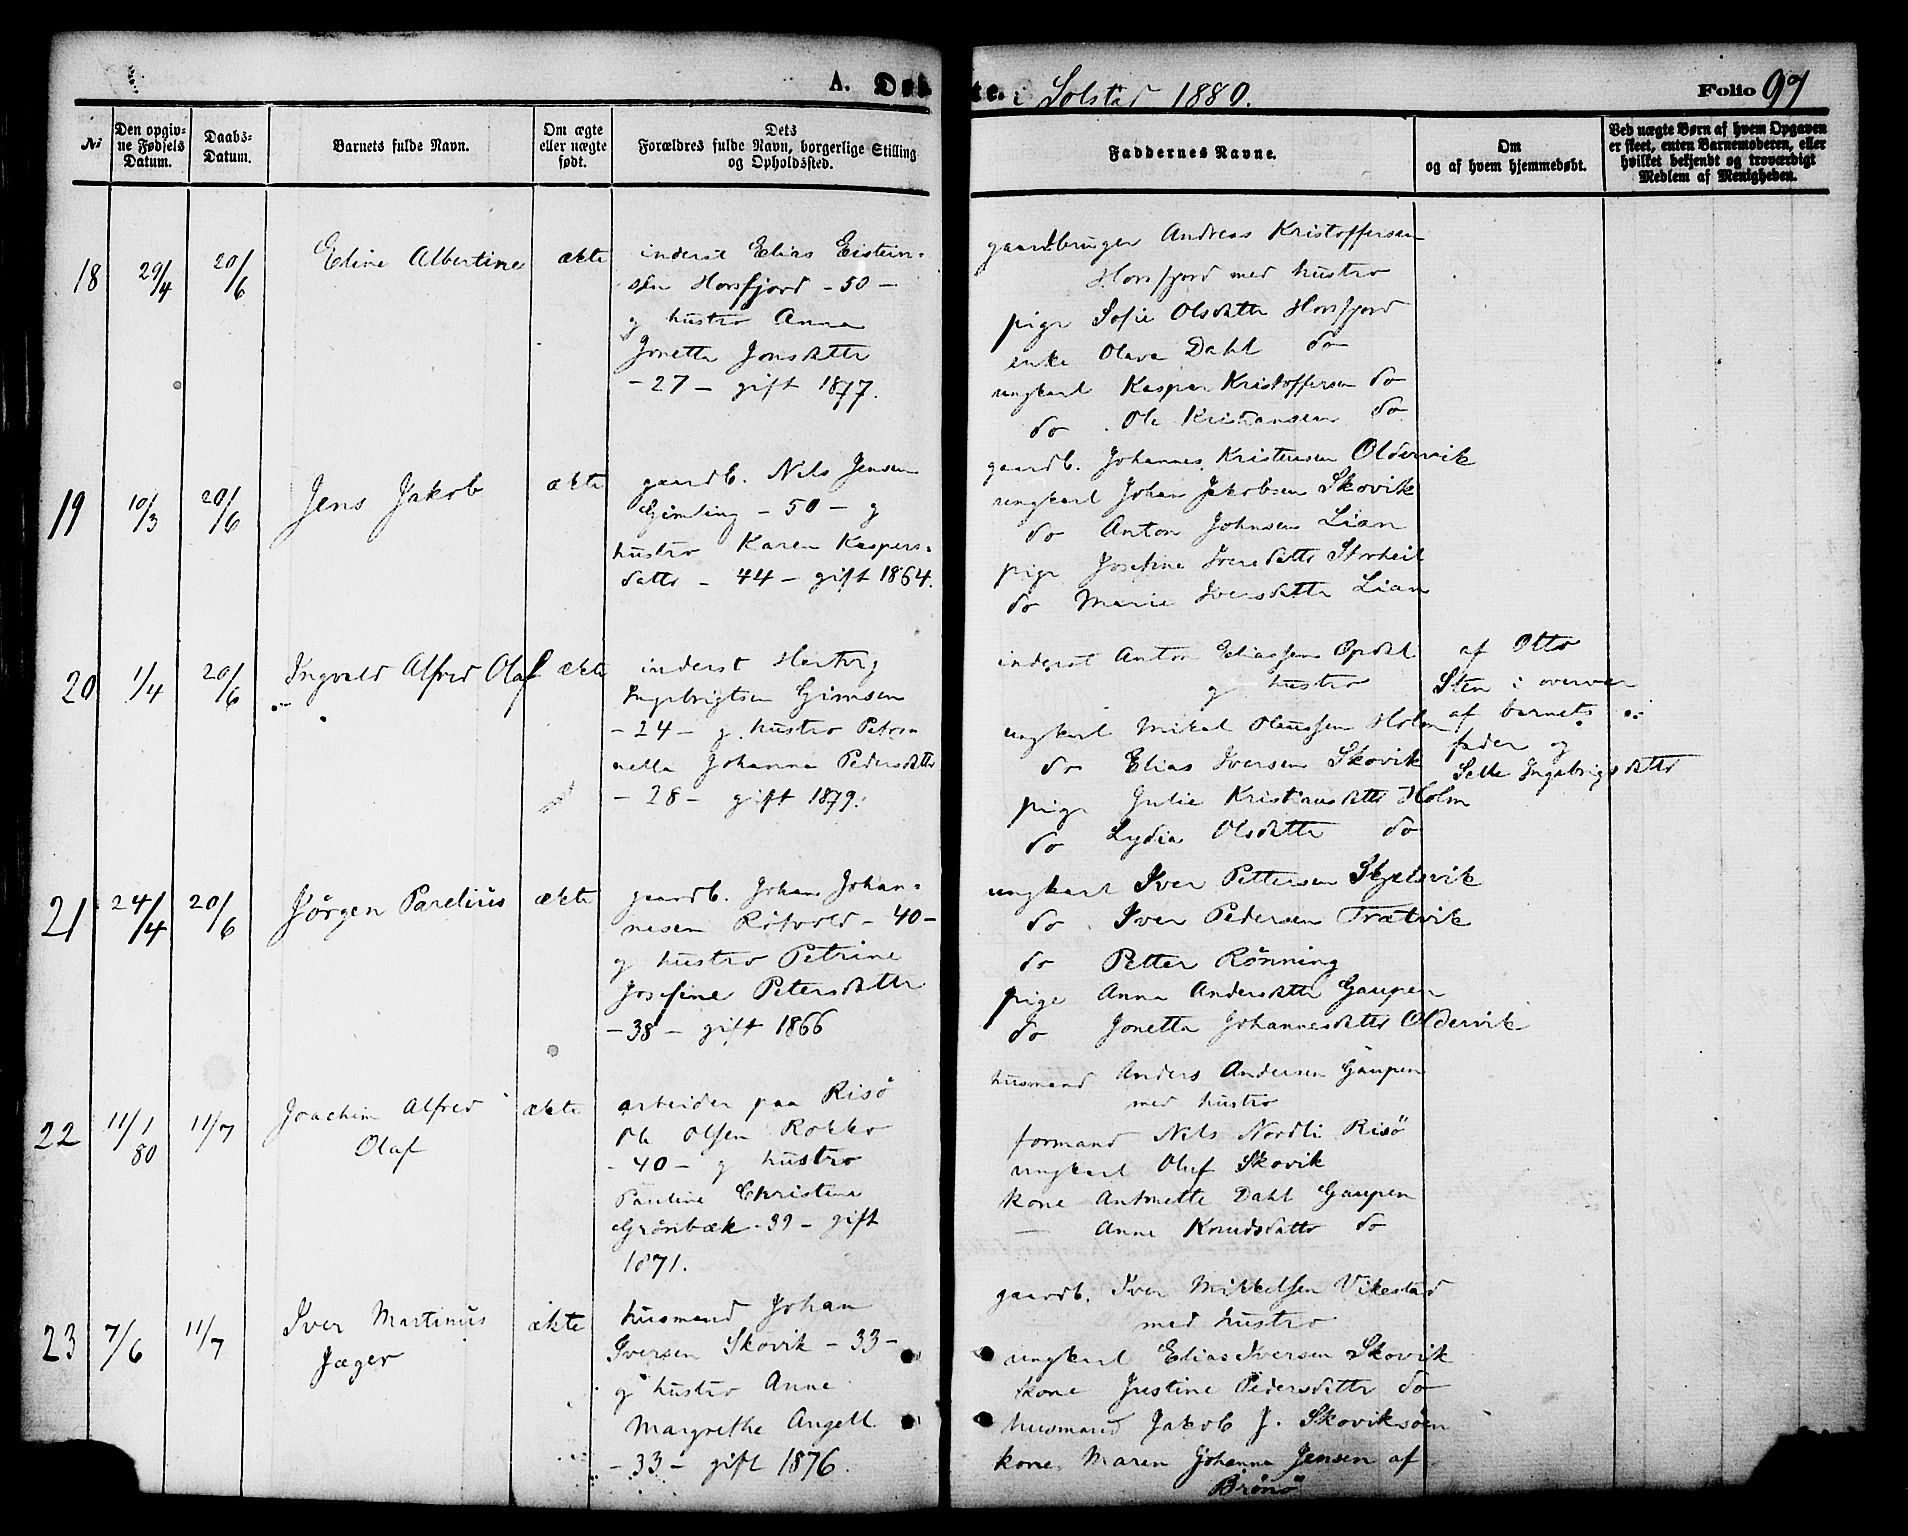 A. Døb
te. i Solstad 1880.
Folio 97
No
Den opgivne Fødsels Datum.
Daabs-Datum.
Barnets fulde Navn.
Om ægte eller uægte født.
Dets Forældres fulde Navn, borgerlige Stilling og Opholdssted.
Faddernes Navne.
Om og af hvem hjemmedøbt.
Ved uægte Børn af hvem Opgaven er skeet, enten Barnemoderen, eller hvilket bekjendt og troværdigt Medlem af Menigheden.
18 29/4 20/6 Edine Albertine ækte
inderst Elias Eistein-
sen Horsfjord - 50 -
g hustro Anna
Jonetta Jonsdatter
- 27 - gift 1877.
gaardbruger Andreas Kristoffersen
Horsfjord med hustro
pige Sofie Olsdatter Horsfjord
enke Olava Dahl do
ungkarl Kaspar Kristoffersen do
do Ole Kristiansen do
19 10/3 20/6 Jens Jakob ækte
gaardb. Nils Jensen
Gimling - 50 - g
hustro Karen Kaspers-
datter - 44 - gift 1864.
gaardb. Johannes Kristensen Oldervik
ungkarl Johan Jakobsen Skovik
do Anton Johnsen Lian
pige Josefine Iversdatter Storheil
do Marie Iversdatter Lian
20 1/4 20/6 Ingvald Alfred Olaf ækte
inderst Hertvig
Ingebrigtsen Gimsen
- 24 - g hustro Petro-
nella Johanna Pedersdatter
- 28 - gift 1879.
inderst Anton Eliassen Opdal
g hustro
ungkarl Mikal Olaussen Holm
do Elias Iversen Skovik
pige Julie Kristiansdatter Holm
do Lydia Olsdatter do
af Otto
Sten i overvær
af barnets
fader og
Selle Ingebrigsdatter
21 24/4 20/6 Jørgen Parelius ækte
gaardb. Johan Johan-
nesen Rötvold - 40 -
g hustro Petrine
Josefine Petersdatter
- 38 - gift 1866
ungkarl Iver Pettersen Skjelsvik
do Iver Pedersen Trætvik
do Petter Rönning
pige Anna Andersdatter Gaupen
do Jonetta Johannesdatter Oldervik
22 11/1 80 11/7 Joachim Alfred
Olaf ækte
arbeider paa Risö
Ole Olsen Rokko
- 40 - g hustro
Pauline Christina
Grönbæk - 39 - gift
1871.
husmand Anders Andersen Gaupen
med hustro
formand Nils Nordli Risö
ungkarl Oluf Skovik
kone Antonette Dahl Gaupen
— Anne Knudsdatter do
23 7/6 11/7 Iver Martinus
Jæger ækte
husmand Johan
Iversen Skovik - 33 -
g hustro Anne
Margrethe Angell
- 33 - gift 1876.
gaardb. Iver Mikkelsen Vikestad
med hustro
ungkarl Elias Iversen Skovik
kone Justine Pedersdatter do
husmand Jakob J. Skoviksöen
kone Maren Johanna Jensen af
Brönö